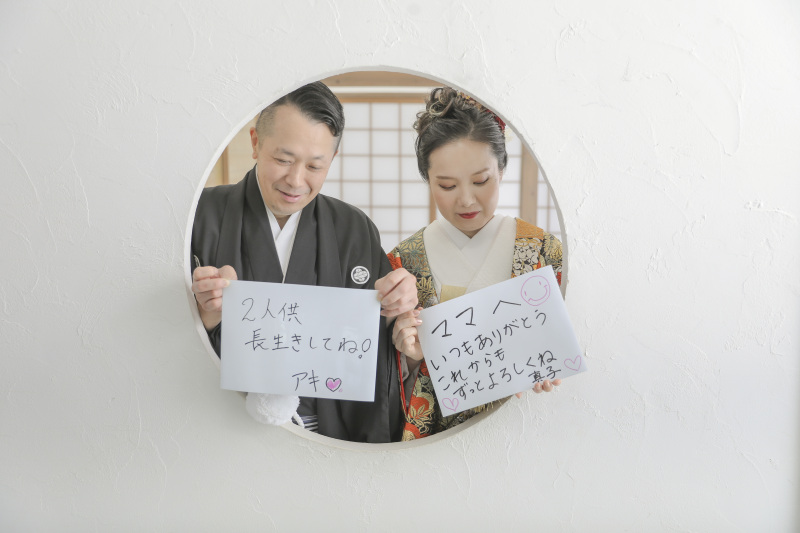 2人供
長生きしてね!
アキ
ママへ
いつもありがとう
これからも
ずっとよろしくね
真子